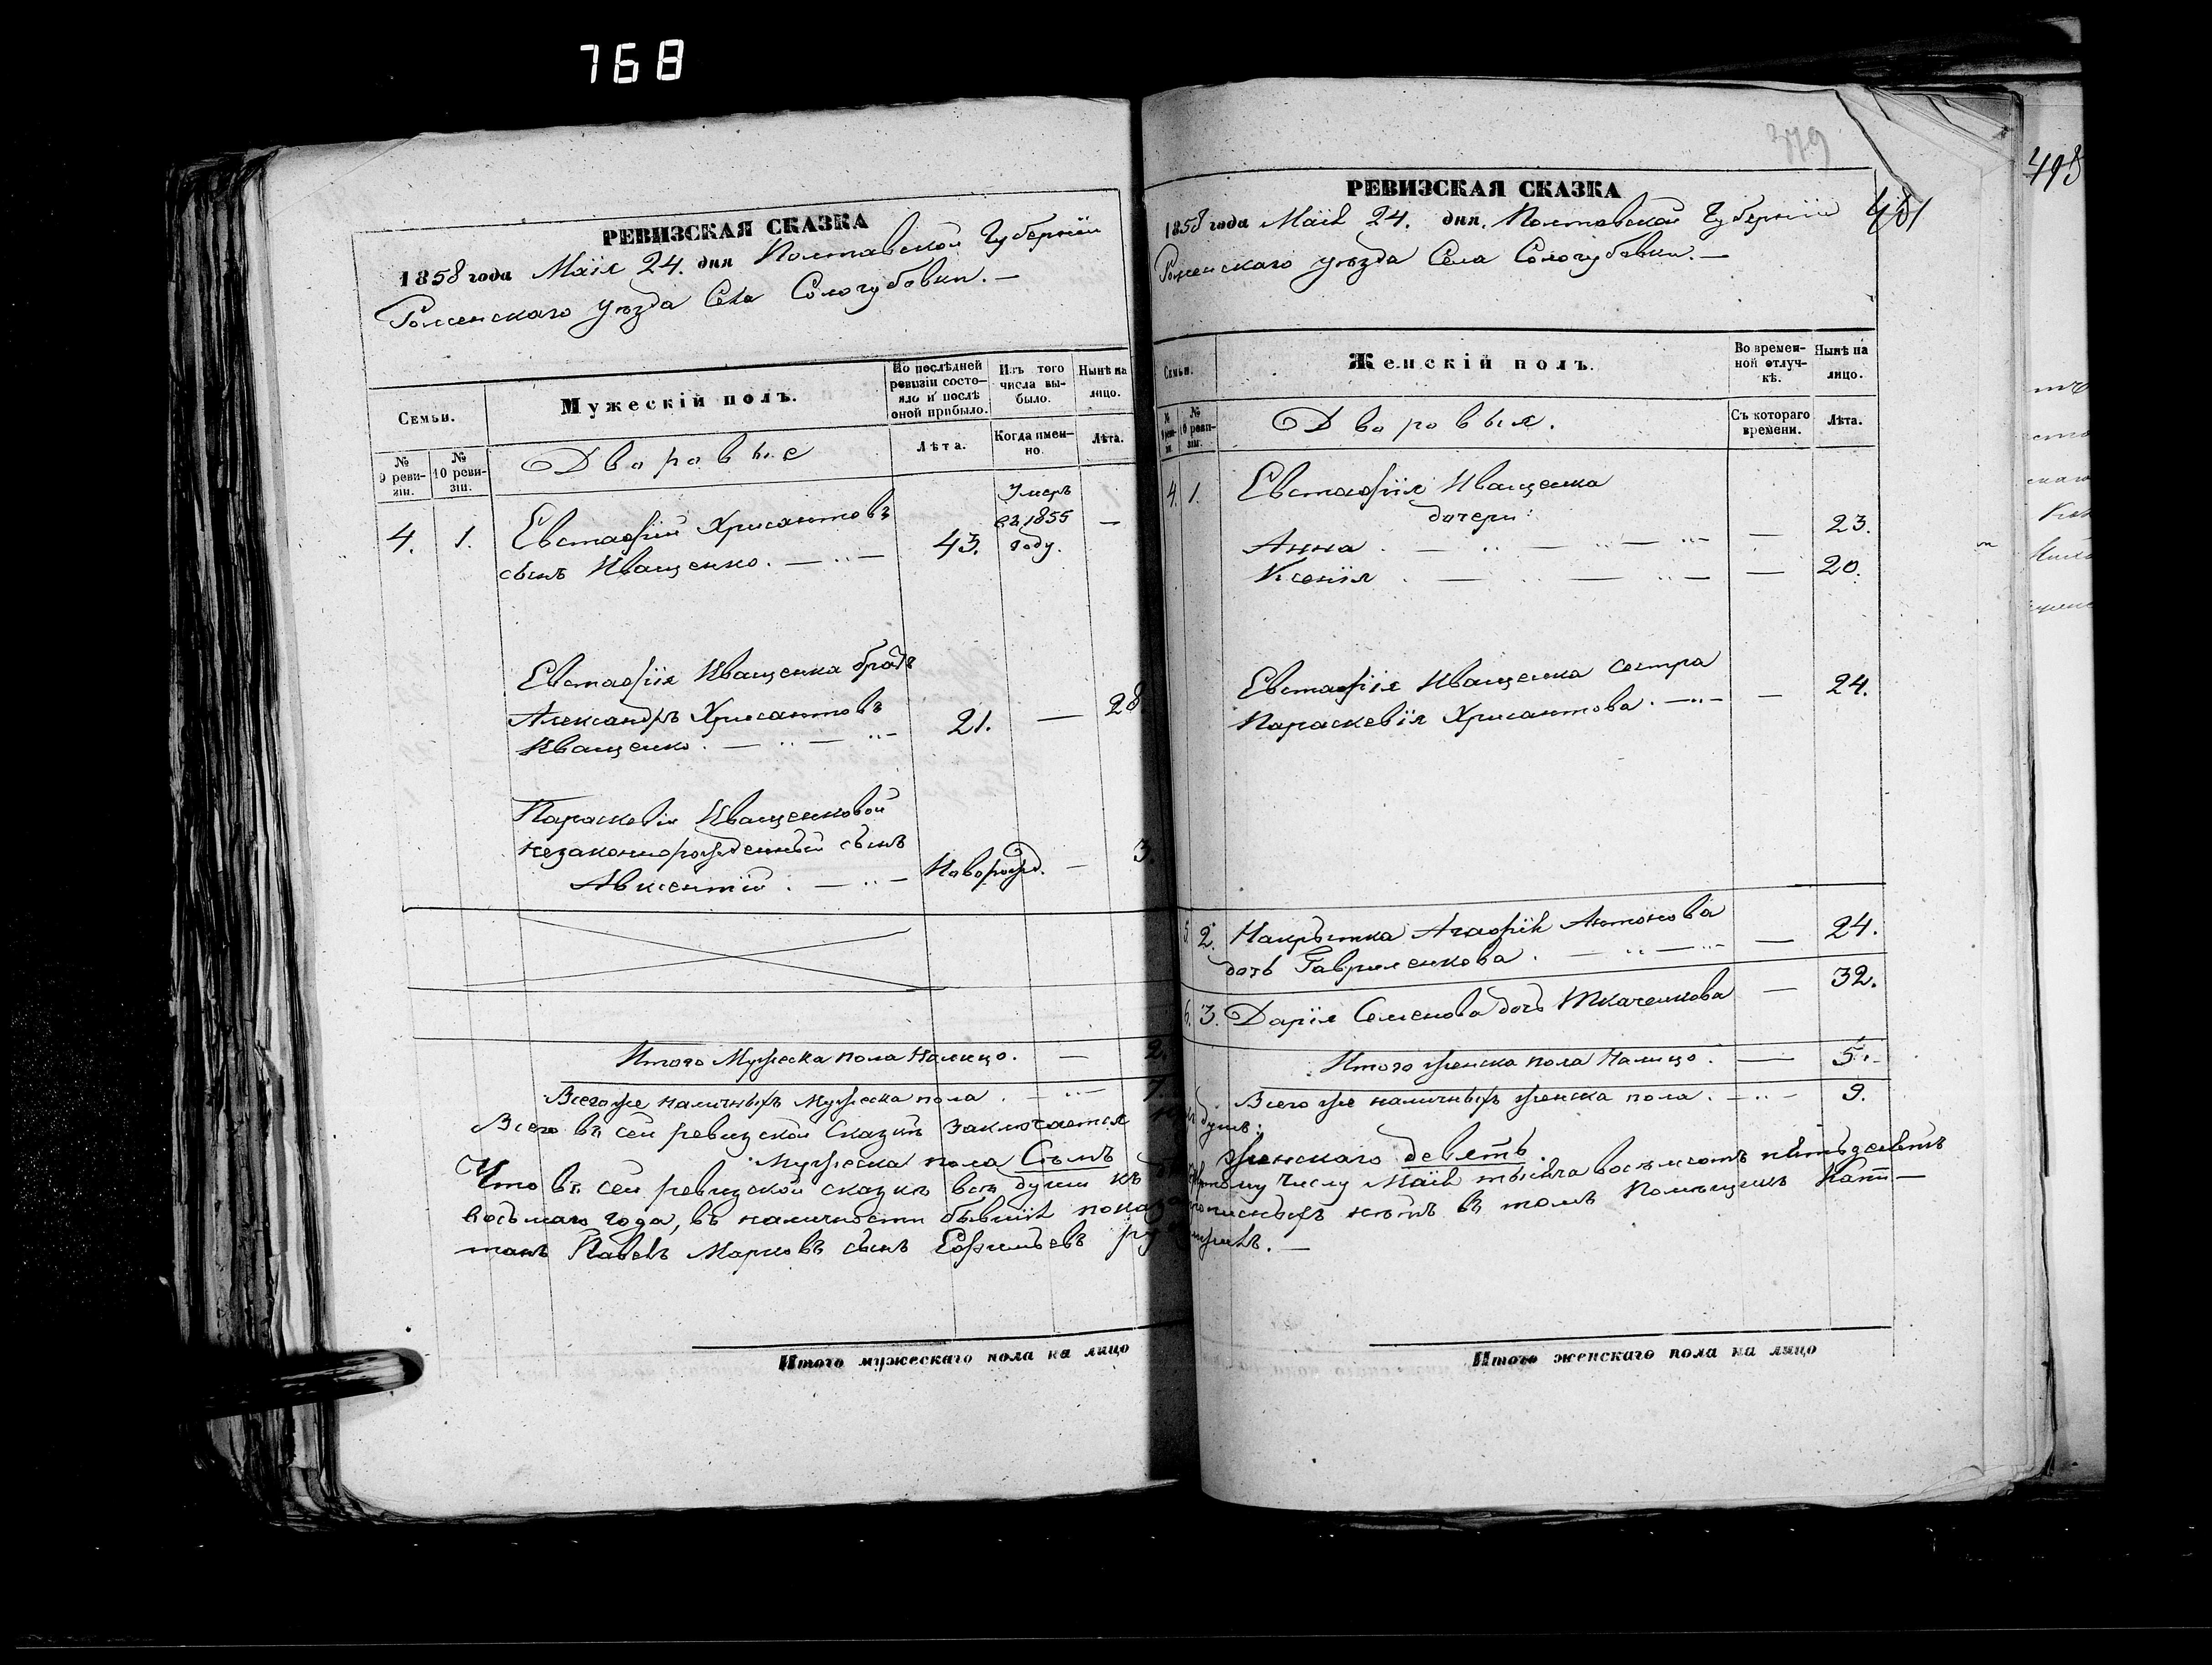 768
РЕВИЗСКАЯ СКАЗКА
1858 года Маія 24. дня Полтавской Губерніи
Роменскаго уѣзда Села Сологубовки. —
Семьи.
Мужескій полъ.
По послѣдней ревизіи состояло и послѣ оной прибыло.
Изъ того числа выбыло.
Нынѣ на лицо.
№ 9 ревизіи.
№ 10 ревизіи.
Дворовые
Лѣта.
Когда именно.
Лѣта.
4. 1. Евстафій Хрисантовъ
сынъ Иващенко. — 43. Умеръ въ 1855 году. —
Евстафія Иващенка братъ
Александръ Хрисантовъ
Иващенко. — 21. — 28.
Параскевіи Иващенковой
незаконнорожденный сынъ
Авксентій. — Новорожд. — 3.
Итого Мужеска пола Налицо. — 2.
Всего же наличныхъ Мужеска пола. — 7.
Итого мужескаго пола на лицо
379
481
498
РЕВИЗСКАЯ СКАЗКА
1858 года Маія 24. дня. Полтавской Губерніи
Роменскаго уѣзда Села Сологубовки. —
Семьи.
Женскій полъ.
Во временной отлучкѣ.
Нынѣ на лицо.
№ 10 ревизіи.
Дворовыя.
Съ котораго времени.
Лѣта.
4. 1. Евстафія Иващенка
дочери:
Анна. — 23.
Ксенія. — 20.
Евстафія Иващенка сестра
Параскевія Хрисантова. — 24.
5. 2. Накрытка Агафія Антонова
дочь Гавриленкова. — 24.
6. 3. Дарія Семенова дочь Ткаченкова — 32.
Итого женска пола Налицо. — 5.
Всего же наличныхъ женска пола. — 9.
Всего въ сей ревизской Сказкѣ заключается душъ:
Мужеска пола Семь Женскаго девять.
Что въ сей ревизской сказкѣ всѣ души къ тому числу Маія тысяча восемсотъ пятьдесятъ
восьмаго года, въ наличности бывшія показаны прописныхъ нѣтъ въ томъ Помѣщикъ Капи—
танъ Павелъ Марковъ сынъ Ефимьевъ
Итого женскаго пола на лицо